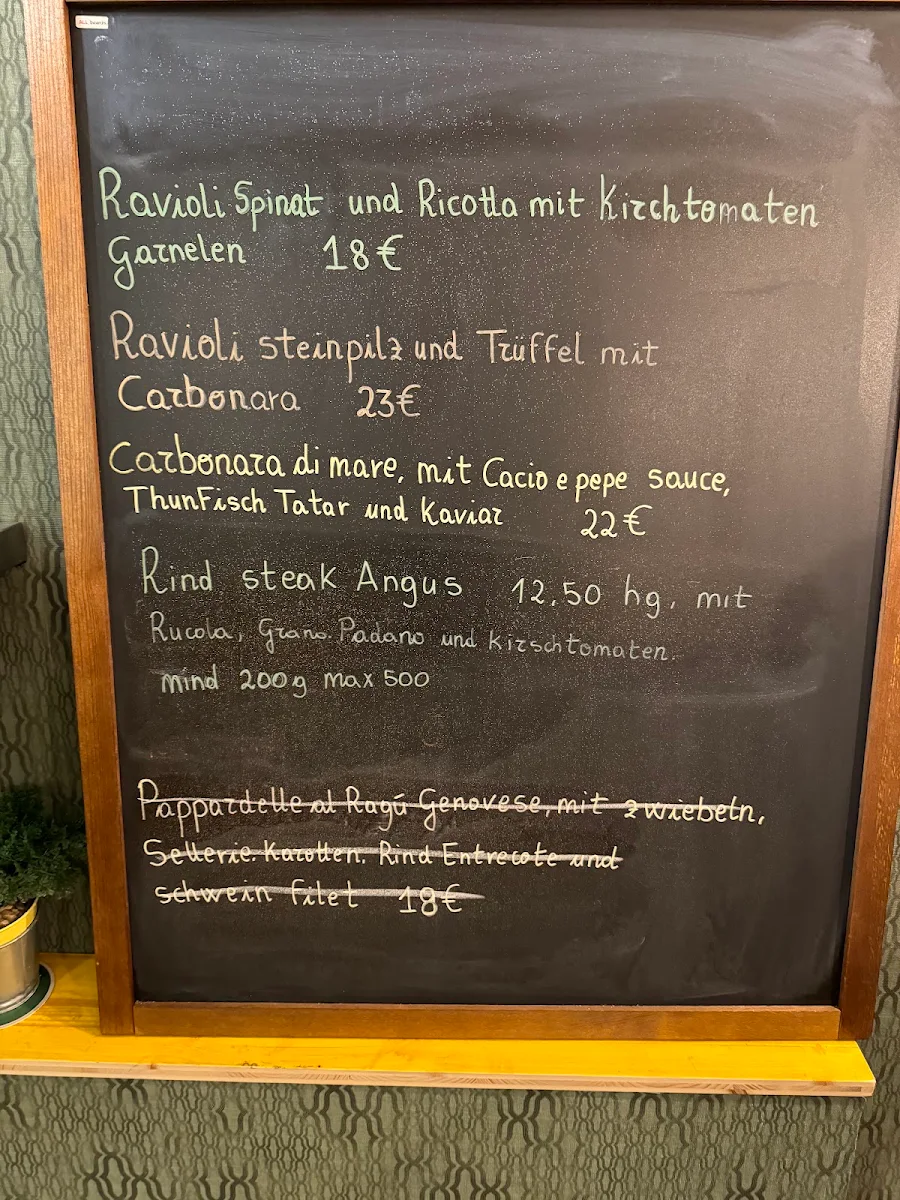 Ravioli Spinat und Ricotta mit Kirchtomaten
Garnelen 18€
Ravioli steinpilz und Trüffel mit
Carbonara 23€
Carbonara di mare, mit Cacio e pepe sauce,
ThunFisch Tatar und Kaviar 22€
Rind steak Angus 12,50 hg, mit
Rucola, Grano Padano und Kirschtomaten.
mind 200g max 500
Pappardelle al Ragú Genovese, mit zwiebeln,
Sellerie. Karotten. Rind Entrecote und
schwein filet 18€